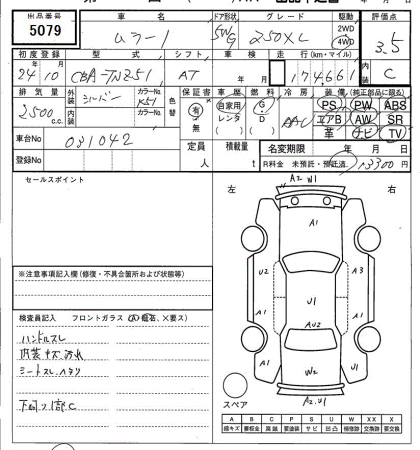 出品番号 車名 ドア形状 グレード 駆動 評価点
5079 ムラーノ 5W 250XL 2WD 4WD 3.5
初度登録 型式 シフト 車検 走行(km・マイル) 内装
24年10月 CBA-TNZ51 AT 年 月 174661 C
排気量 外装 シルバー カラーNo. K51 色替 保証書 車歴 燃料 冷房 装備(純正部品に限る)
2500c.c. 内装 カラーNo. 有 無 自家用 レンタ ( ) G D ( ) AAC PS PW ABS
エアB AW SR
革 ナビ TV
車台No 031042 定員 人 積載量 t 名変期限 年 月 日
登録No R料金 未預託・預託済 13300円
セールスポイント
左 右
A2 W1
A1
U2 A3
U1
AU2
A1 W2 U1
A2.U1
スペア
※注意事項記入欄(修復・不具合箇所および状態等)
検査員記入 フロントガラス
ハンドルスレ
内装キズ、汚れ
シートスレ、ヘタリ
下廻り1部C
A B C P S U W X XX X
線キズ 板金 腐蝕 要塗装 サビ 凹凸 補修跡 交換跡 要交換